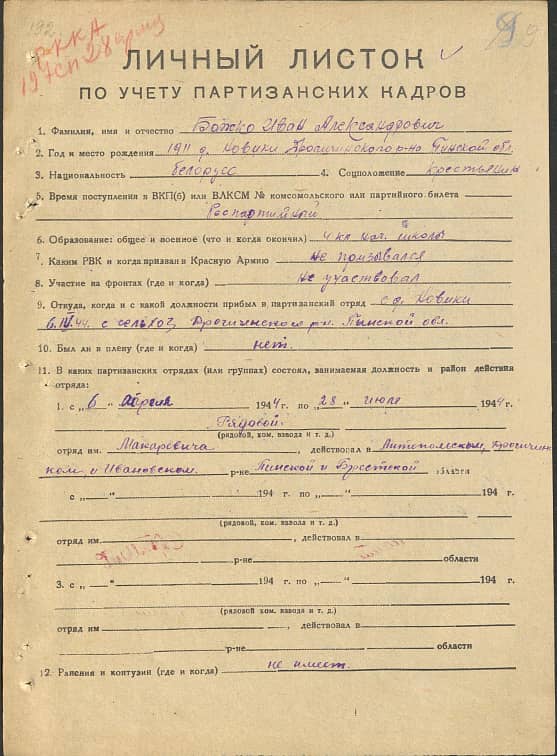 192
РККА
197 сп 28 армия
99
ЛИЧНЫЙ ЛИСТОК
ПО УЧЕТУ ПАРТИЗАНСКИХ КАДРОВ
1. Фамилия, имя и отчество Божко Иван Александрович
2. Год и место рождения 1911 д. Новики Дрогичинского р-на Пинской обл.
3. Национальность белорусс 4. Соцположение крестьянин
5. Время поступления в ВКП(б) или ВЛКСМ № комсомольского или партийного билета
беспартийный
6. Образование: общее и военное (что и когда окончил) 4 кл. нач. школы
7. Каким РВК и когда призван в Красную Армию не призывался
8. Участие на фронтах (где и когда) не участвовал
9. Откуда, когда и с какой должности прибыл в партизанский отряд с д. Новики
6.IV.44. с сельхоз, Дрогиченского р-н. Пинской обл.
10. Был ли в плену (где и когда) нет.
11. В каких партизанских отрядах (или группах) состоял, занимаемая должность и район действия
отряда:
1. с „6“ апреля 1944 г. по „28“ июля 1944 г.
Рядовой.
(рядовой, ком. взвода и т. д.)
отряд им. Макаревича, действовал в Дрогичинс-
ком, и Ивановском. р-не Пинской и Брестской области
с „ “ 194 г. по „ “ 194 г.
(рядовой, ком. взвода и т. д.)
отряд им. , действовал в
р-не области
3. с „ “ 194 г. по „ “ 194 г.
(рядовой, ком. взвода и т. д.)
отряд им , действовал в
р-не области
12. Ранения и контузии (где и когда) не имеет.